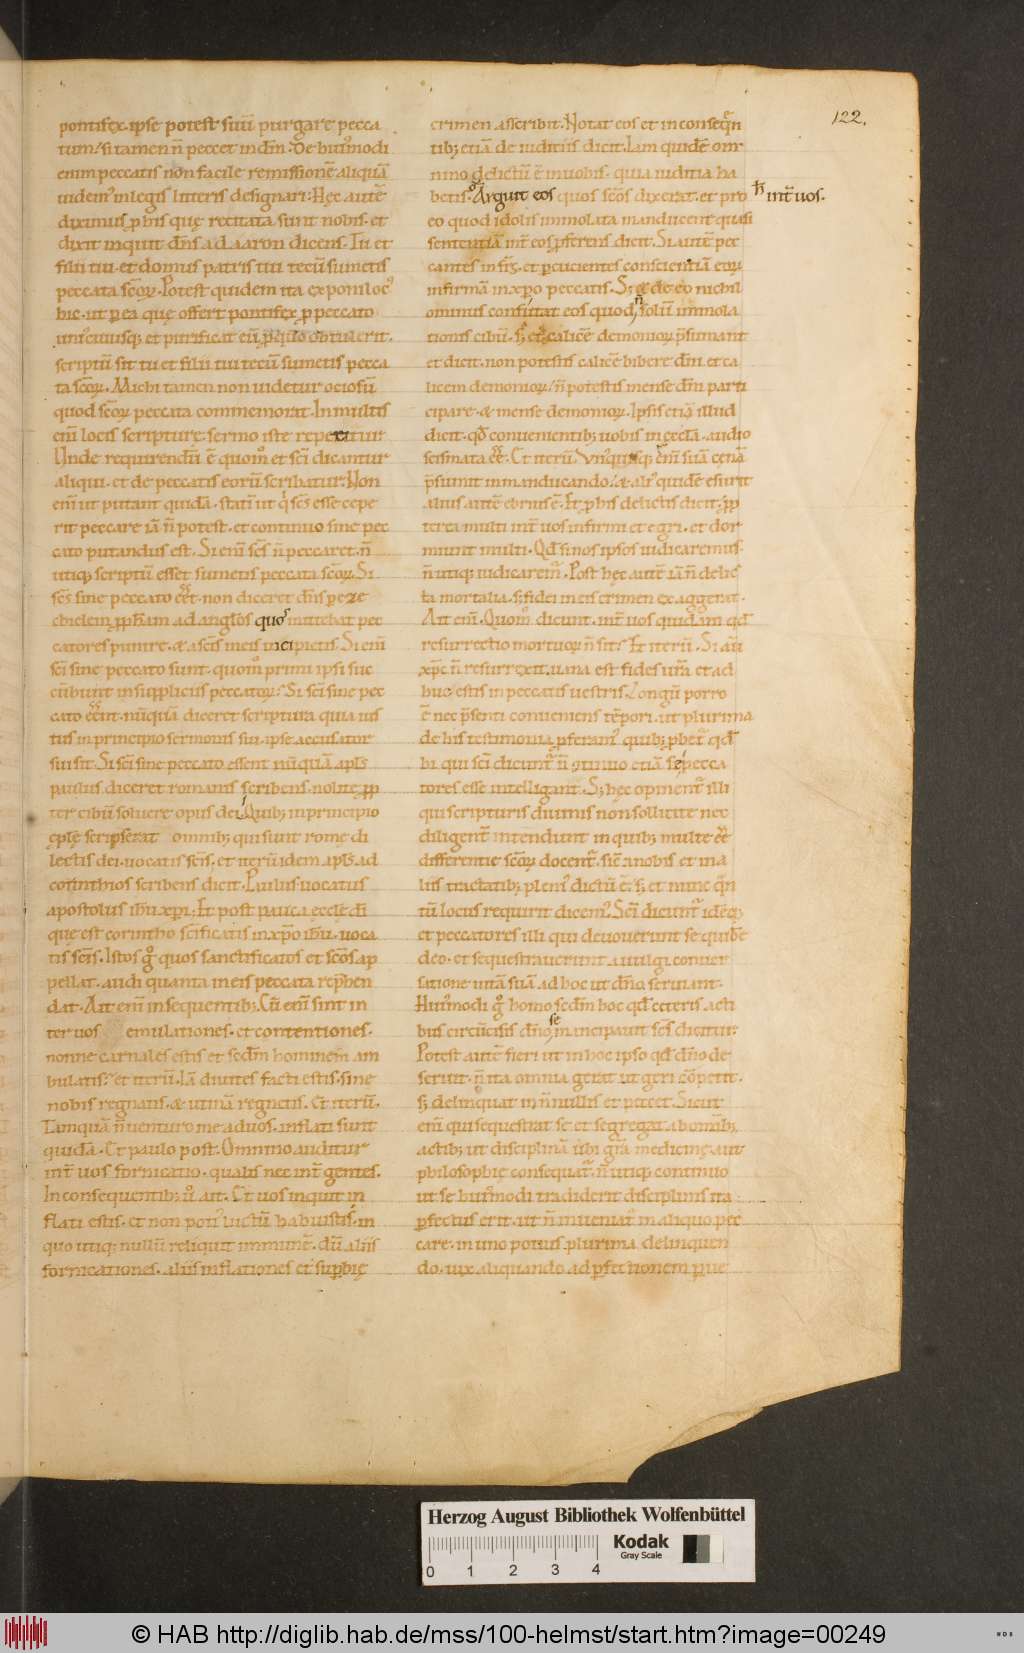 122.
pontifex. ipse potest suū purgare pecca
tum. si tamen n̄ peccet in dm̄. De huiꝰmodi
enim peccatis non facile remissionē aliquā
uidemꝰ in legis litteris designari. Hęc autē
diximus ꝓ his quę recitata sunt nobis. et
dixit inquit dn̄s ad aaron dicens. Tu et
filii tui. et domus patris tui tecū sumetis
peccata sc̄oꝝ. Potest quidem ita exponi locꝰ
hic. ut ꝑ ea quę offert pontifex ꝓ peccato
uniꝰcuiusqꝫ et purificat eū, ꝓ quo obtulerit.
scriptū sit tu et filii tui tecū sumetis pecca
ta sc̄oꝝ. Michi tamen non uidetur ociosū
quod sc̄oꝝ peccata commemorat. In multis
eni locis scripturę sermo iste reperitur
Unde requirendū ē quomͦ et sc̄i dicantur
aliqui. et de peccatis eorū scribatur. Non
eni ut putant quidā. statī ut qͥs sc̄s esse cepe
rit peccare iā n̄ potest. et continuo sine pec
cato putandus est. Si eni sc̄s n̄ peccaret. n̄
utiqꝫ scriptū esset sumetis peccata sc̄oꝝ. Si
sc̄s sine peccato eēt. non diceret dn̄s ꝑ eze
chielem ꝓph̄am ad angl̄os quos mittebat pec
catores punire. & a sc̄is meis incipietis. Si eni
sc̄i sine peccato sunt. quomͦ primi ipsi suc
cūbunt in suppliciis peccatoꝝ? Si sc̄i sine pec
cato eēnt. nūquā diceret scriptura quia ius
tus in principio sermonis sui. ipse accusator
sui sit. Si sc̄i sine peccato essent nūquā apl̄s
paulus diceret romanis scribens. nolite ꝓp
ter cibū soluere opus dei. Quibꝫ in principio
ep̄lę scripserat omnibꝫ qui sunt romę di
lectis dei. uocatis sc̄is. et iterū idem apl̄s ad
corinthios scribens dicit. Paulus uocatus
apostolus ih̄u xp̄i. Et post pauca ecclę di
quę est corintho sc̄ificatis in xp̄o ih̄u. uoca
tis sc̄is. Istos gͦ quos sanctificatos et sc̄os ap
pellat. audi quanta in eis peccata rep̄hen
dat. Ait eni in sequentibꝫ. Cū eni sint in
ter uos emulationes. et contentiones.
nonne carnales estis et sedm̄ hominem am
bulatis? et iterū. Iā diuites facti estis. sine
nobis regnatis. & utinā regnetis. Et iterū.
Tamquā n̄ uenturo me ad uos. inflati sunt
quidā. Et paulo post. Omnino auditur
int̄ uos fornicatio. qualis nec int̄ gentes.
In consequentibꝫ u̇ ait. Et uos inquit in
flati estis. et non potiꝰ luctū habuistis. in
quo utiqꝫ nullū reliquit immunē. dū aliis
fornicationes. aliis inflationes et supbię
crimen asscribit. Notat eos et in conseqn̄
tibꝫ etiā de iudiciis dicit. Iam quidē om
nino delictū ē in uobis. quia iuditia ha
betis. Arguit eos quos sc̄os dixerat. et pro
h̄ int̄ uos.
eo quod idolis immolata manducent quasi
sententiā int̄ eos ꝓferens dicit. Si autē pec
cantes in fr̄s. et ꝑcucientes conscientiā eoꝝ
infirmā in xp̄o peccatis. Sꝫ & de eo nichil
ominus confutat eos quod n̄ solū immola
tionis cibū. sꝫ et calicē demonioꝝ p̄sumant
et dicit. non potestis calicē bibere dn̄i. et ca
licem demonioꝝ. n̄ potestis mensę dn̄i parti
cipare. & mensę demonioꝝ. Ipsis etiā illud
dicit. qd̄ conuenientibꝫ uobis in ęccl̄a. audio
scismata eē. Et iterū. Unꝰquisqꝫ eni suā cęnā
p̄sumit in manducando. & aliꝰ quidē esurit
alius autē ebrius ē. Et ꝓ his delictis dicit. ꝓp
terea multi int̄ uos infirmi et egri. et dor
miunt multi. Qd̄ si nos ipsos iudicaremus.
n̄ utiqꝫ iudicaremͬ. Post hęc autē iā n̄ delic
ta mortalia. sꝫ fidei in eis crimen exaggerat.
Ait eni. Quomͦ dicunt int̄ uos quidam qd̄
resurrectio mortuoꝝ n̄ sit? Et iterū. Si aū
xp̄c n̄ resurrexit. uana est fides ur̄a et ad
huc estis in peccatis uestris. Longū porro
ē nec p̄senti conueniens tēpori. ut plurima
de his testimonia ꝓferamꝰ quibꝫ ꝓbetͬ qd̄
hi qui sc̄i dicuntͬ n̄ ꝯtinuo etiā sine pecca
tores esse intelligant. Sꝫ hęc opinentͬ illi
qui scripturis diuinis non sollicite nec
diligent̄ intendunt in quibꝫ multę eē
differentię sc̄oꝝ docentͬ. sic̄ a nobis et in a
liis tractatibꝫ pleniꝰ dictū ē. sꝫ et nunc qn̄
tū locus requirit dicemꝰ. Sc̄i dicuntͬ idēqꝫ
et peccatores illi qui deuouerunt se quidē
deo. et sequestrauerunt a uulgi conuer
satione uitā suā ad hoc ut dn̄o seruiant.
Huiꝰmodi gͦ homo sedm̄ hoc qd̄ ceteris acti
bus circūcisis dn̄o se mancipauit sc̄s dicitur.
Potest autē fieri ut in hoc ipso qd̄ dn̄o de
seruit. n̄ ita omnia gerat ut geri cōpetit.
sꝫ delinquat in n̄nullis et peccet. Sicut
eni qui sequestrat se et segregat ab omībꝫ
actibꝫ ut disciplinā ubi gr̄a medicinę aut
philosophię consequatͬ. n̄ utiqꝫ continuo
ut se huiꝰmodi tradiderit disciplinis ita
ꝑfectus erit. ut n̄ inueniatͬ in aliquo pec
care. in uno potius plurima delinquen
do. uix aliquando ad ꝑfectionem ꝑue
Herzog August Bibliothek Wolfenbüttel
0 1 2 3 4
Kodak
Gray Scale
© HAB http://diglib.hab.de/mss/100-helmst/start.htm?image=00249